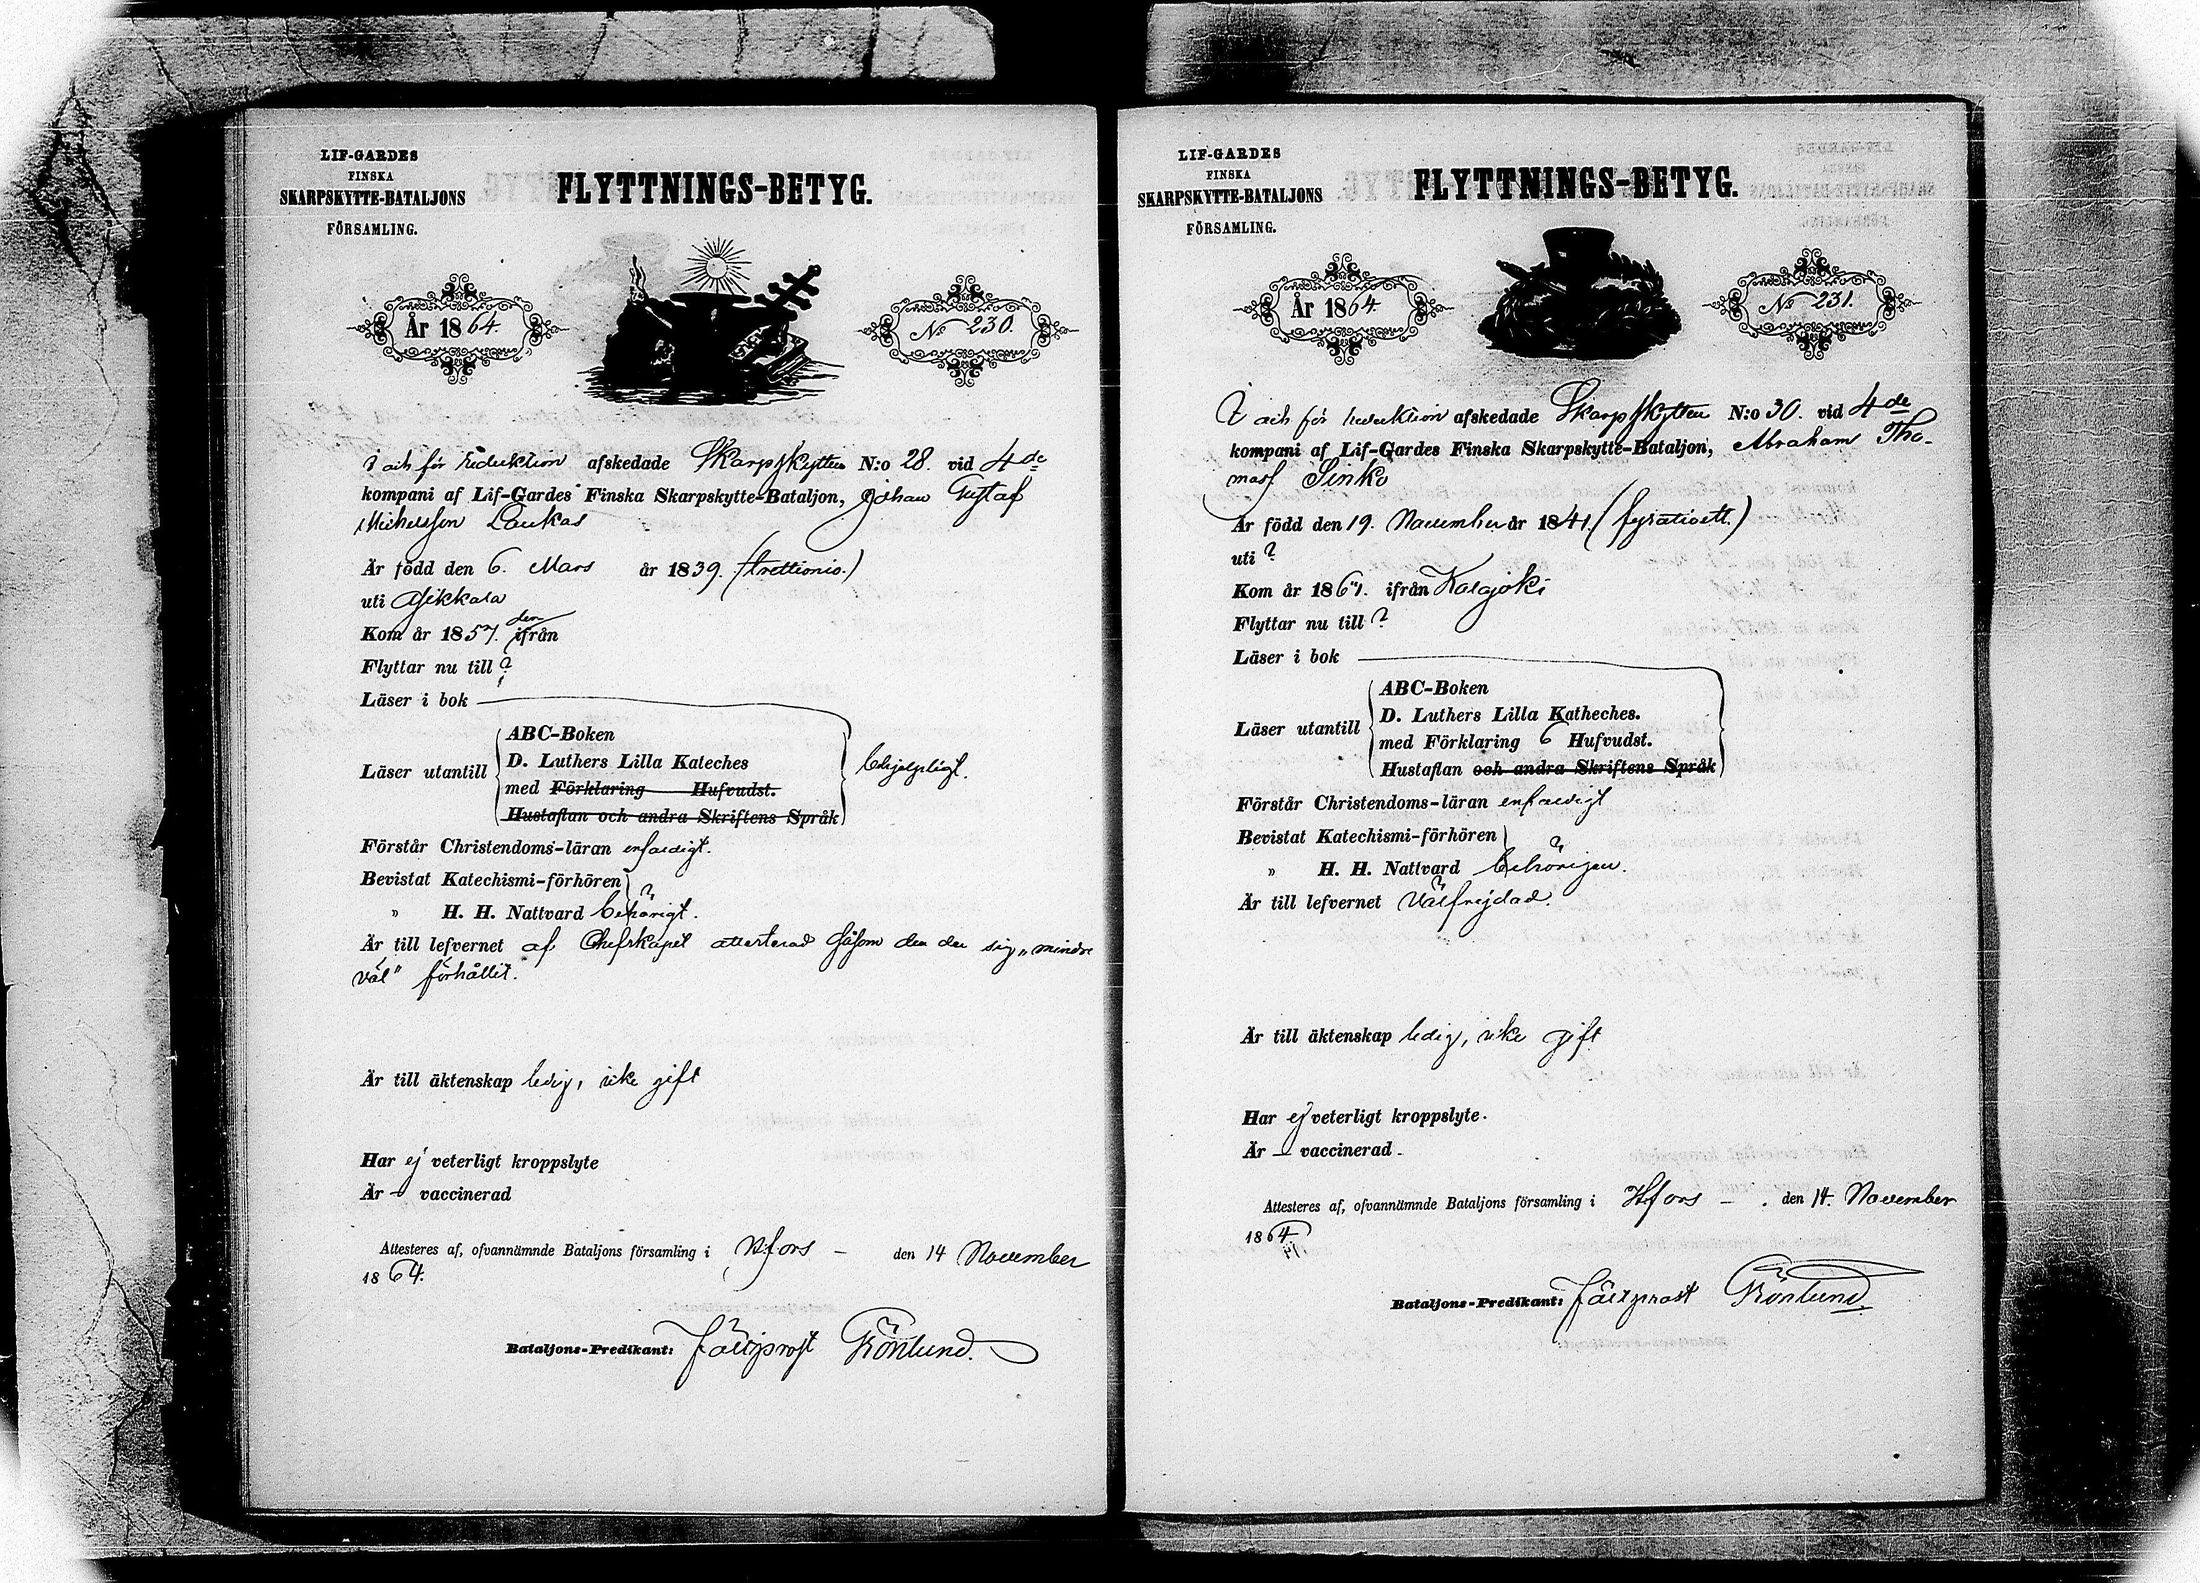 LIF-GARDES
FINSKA
SKARPSKYTTE-BATALJONS
FÖRSAMLING.
FLYTTNINGS-BETYG.
År 1864.
No 230.
I och för reduktion afskedade Skarpskytten N:o 28. vid 4de
kompani af Lif-Gardes Finska Skarpskytte-Bataljon, Johan Gustaf
Michelsson Laukas
Är född den 6. Mars år 1839. (trettionio.)
uti Asikkala
Kom år 1857. ifrån
Flyttar nu till ?
Läser i bok
Läser utantill
ABC-Boken
D. Luthers Lilla Kateches
med Förklaring Hufvudst.
Hustaflan och andra Skriftens Språk
behjelpligt.
Förstår Christendoms-läran enfaldigt.
Bevistat Katechismi-förhören ?
" H. H. Nattvard behörigt.
Är till lefvernet af Chefskapet attesterad såsom den der sig „mindre
väl" förhållit.
Är till äktenskap ledig, icke gift
Har ej veterligt kroppslyte
Är – vaccinerad
Attesteres af, ofvannämnde Bataljons församling i Hfors – den 14 November
1864.
Bataljons-Predikant: Fältprost Grönlund.
LIF-GARDES
FINSKA
SKARPSKYTTE-BATALJONS
FÖRSAMLING.
FLYTTNINGS-BETYG.
År 1864.
No 231.
I och för reduktion afskedade Skarpskytten N:o 30. vid 4de
kompani af Lif-Gardes Finska Skarpskytte-Bataljon, Abraham Tho-
mass Sinko
Är född den 19. November år 1841. (fyrationett.)
uti ?
Kom år 1861. ifrån Kalajoki
Flyttar nu till ?
Läser i bok
Läser utantill
ABC-Boken
D. Luthers Lilla Katheches.
med Förklaring 6 Hufvudst.
Hustaflan och andra Skriftens Språk
Förstår Christendoms-läran enfaldigt
Bevistat Katechismi-förhören ?
" H. H. Nattvard behörigen.
Är till lefvernet Välfrejdad.
Är till äktenskap ledig, icke gift
Har ej veterligt kroppslyte.
Är – vaccinerad.
Attesteres af, ofvannämnde Bataljons församling i Hfors – . den 14. November
1864.
Bataljons-Predikant: Fältprost Grönlund.